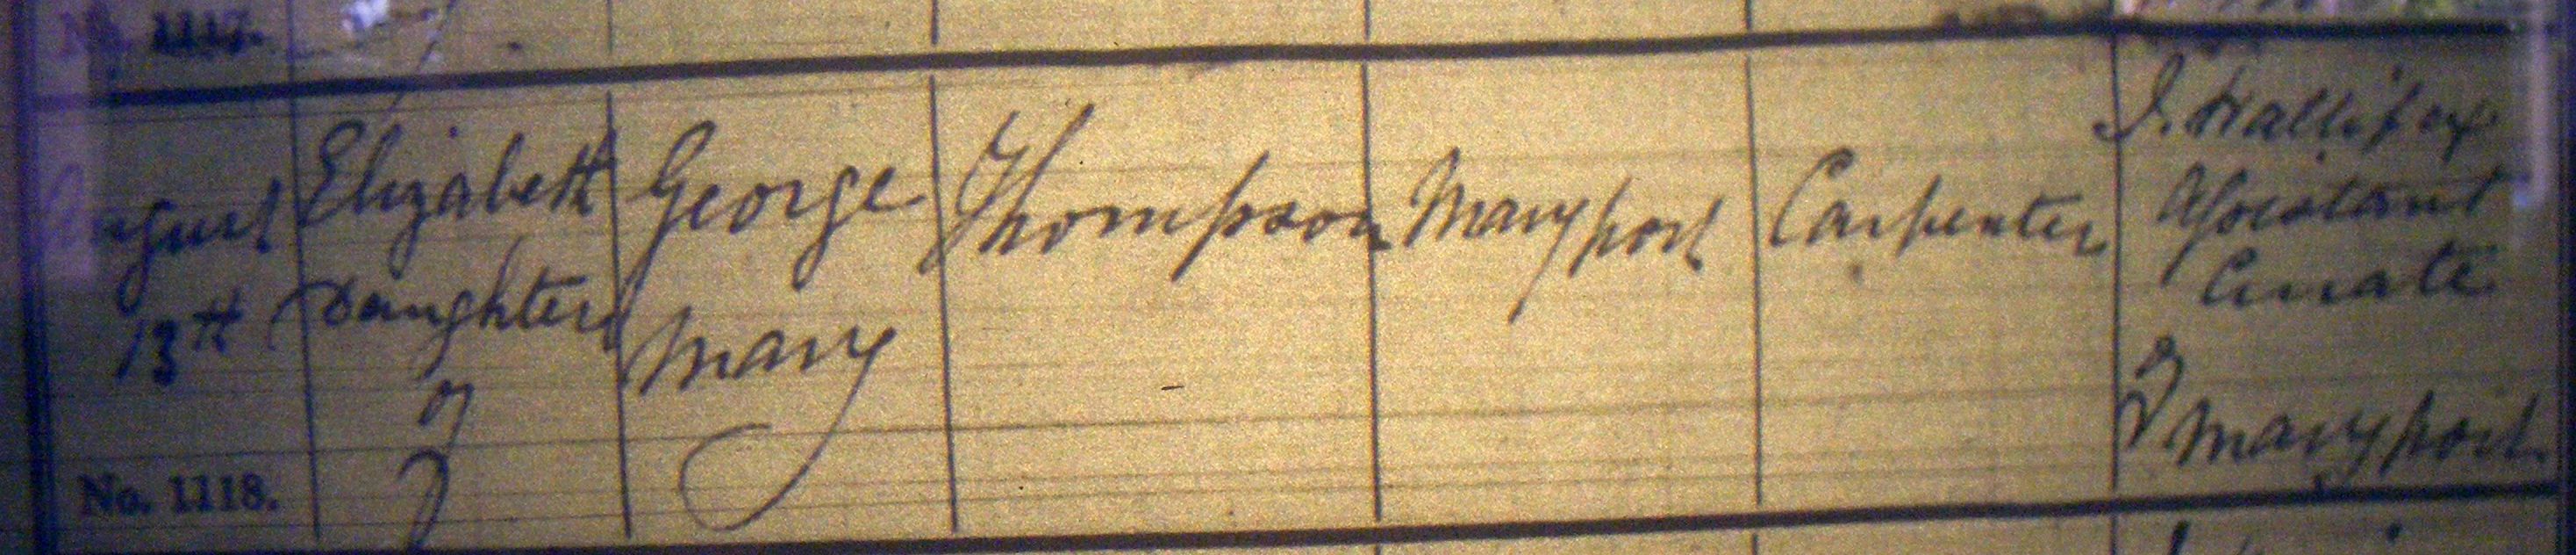 No. 1117.
August
13th
No. 1118.
Elizabeth
Daughter
of
George
Mary
Thompson
Maryport
Carpenter
J. Hallifax
Assistant
Curate
of Maryport